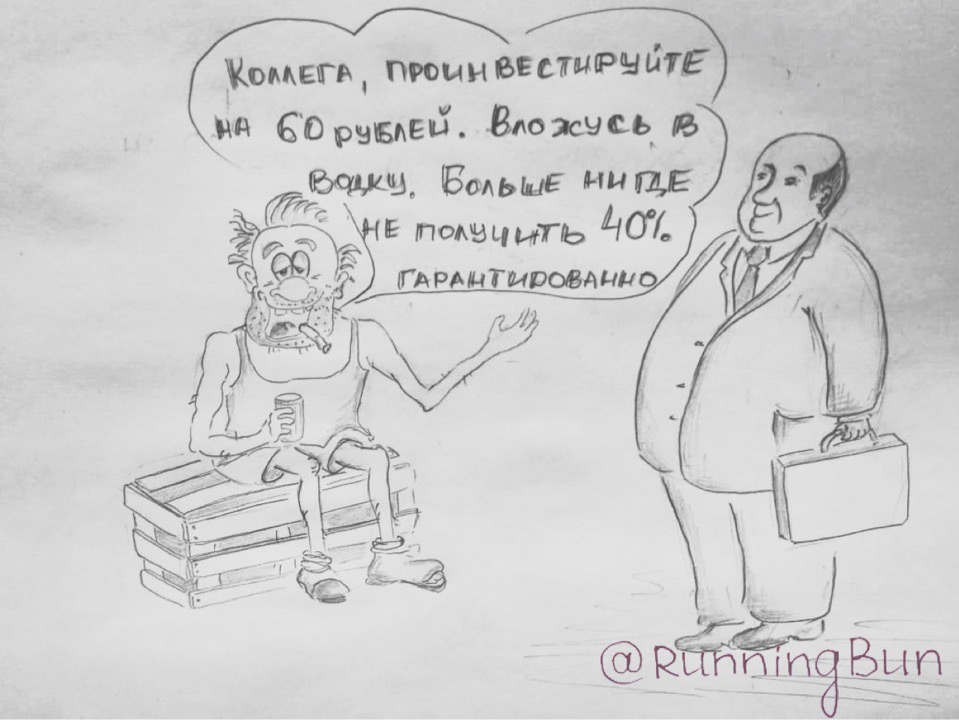 Коллега, проинвестируйте
на 60 рублей. Вложусь в
водку. Больше нигде
не получить 40%
гарантированно
@RunningBun